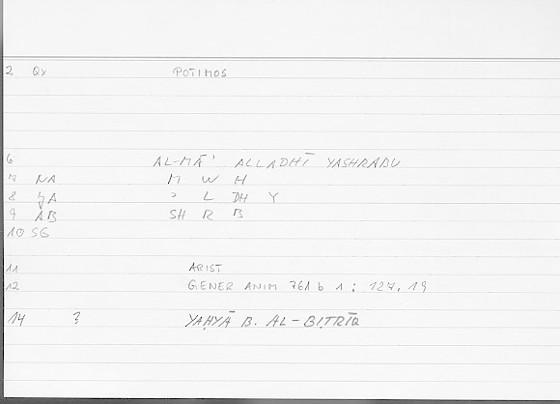 2 Qy POTIMOS
6 AL-MĀʾ ALLADHĪ YASHRABU
7 NA M W H
8 A ʾ L DH Y
9 AB SH R B
10 SG
11 ARIST
12 GENER ANIM 761 b 1 : 127, 19
14 ? YAḤYĀ B. AL-BIṬRĪQ